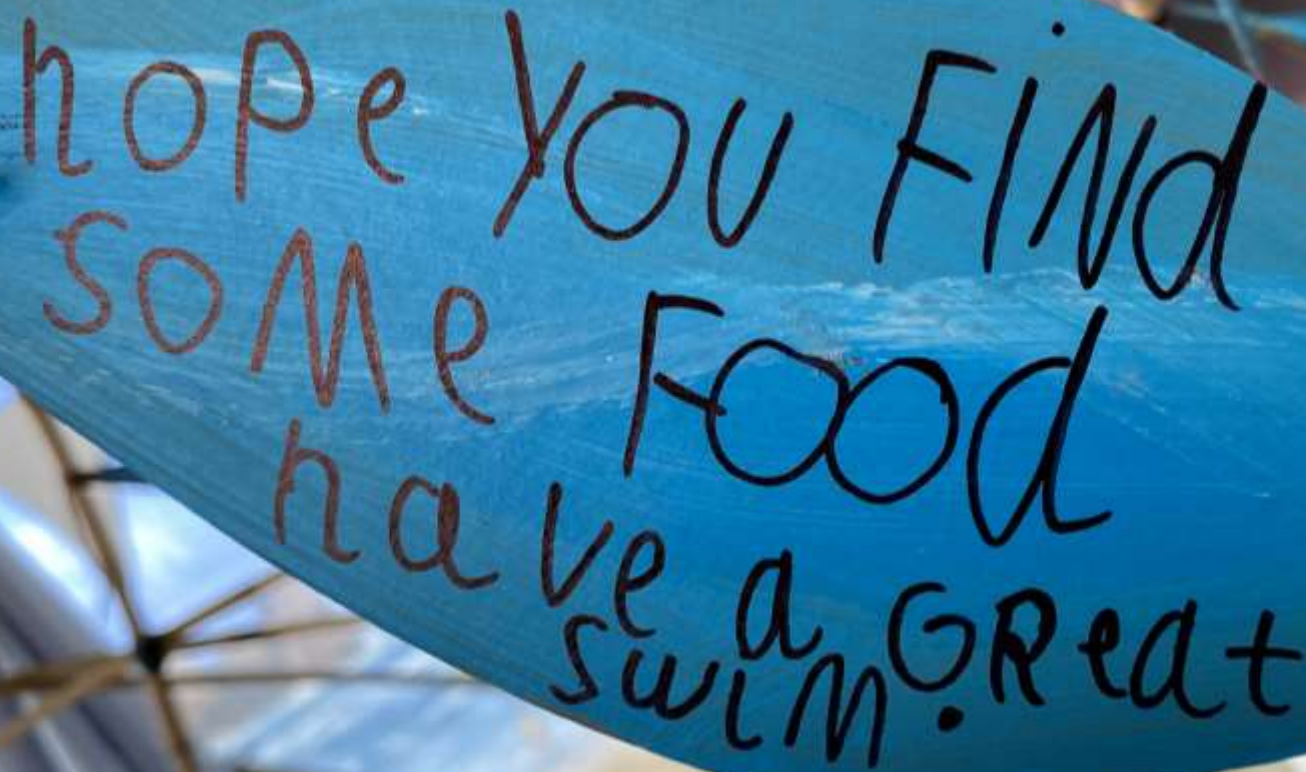 hope you FINd
soMe Food
have a GReat
swiM.